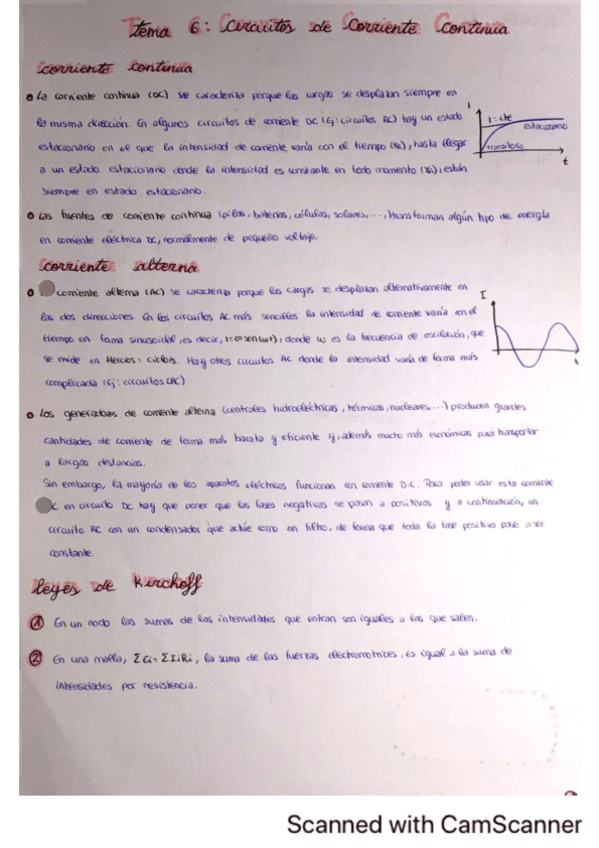 Tema 6: Circuitos de Corriente Continua
corriente continua
La corriente continua (DC) se caracteriza porque las cargas se desplazan siempre en
la misma dirección. En algunos circuitos de corriente DC (Ej: circuitos RC) hay un estado
estacionario en el que la intensidad de corriente varía con el tiempo, hasta llegar
a un estado estacionario donde la intensidad es constante en todo momento, están
siempre en estado estacionario.
I
I = cte
estacionario
transitorio
t
Las fuentes de corriente continua (pilas, baterías, células, solares, ..., transforman algún tipo de energía
en corriente eléctrica DC, normalmente de pequeño voltaje.
corriente alterna
corriente alterna (AC) se caracteriza porque las cargas se desplazan alternativamente en
las dos direcciones. En los circuitos AC más sencillos la intensidad de corriente varía en el
tiempo en forma sinusoidal, es decir, donde w es la frecuencia de oscilación, que
se mide en Hercios = ciclo/s. Hay otros circuitos AC donde la intensidad varía de forma más
complicada (Ej: circuitos LRC)
I
t
Los generadores de corriente alterna (centrales hidroeléctricas, térmicas, nucleares...) producen grandes
cantidades de corriente de forma más barata y eficiente y, además mucho más económicas para transportar
a largas distancias.
Sin embargo, la mayoría de los aparatos eléctricos funcionan en corriente D.C. Para poder usar esta corriente
C en circuito DC hay que poner que las fases negativas se pasan a positivas y a continuación, un
circuito RC con un condensador que actúe como un filtro, de forma que toda la fase positiva pase a ser
constante.
leyes de Kirchoff
1 En un nodo las sumas de las intensidades que entran son iguales a las que salen.
2 En una malla, Σεi = ΣIiRi, la suma de las fuerzas electromotrices, es igual a la suma de
intensidades por resistencia.
Scanned with CamScanner